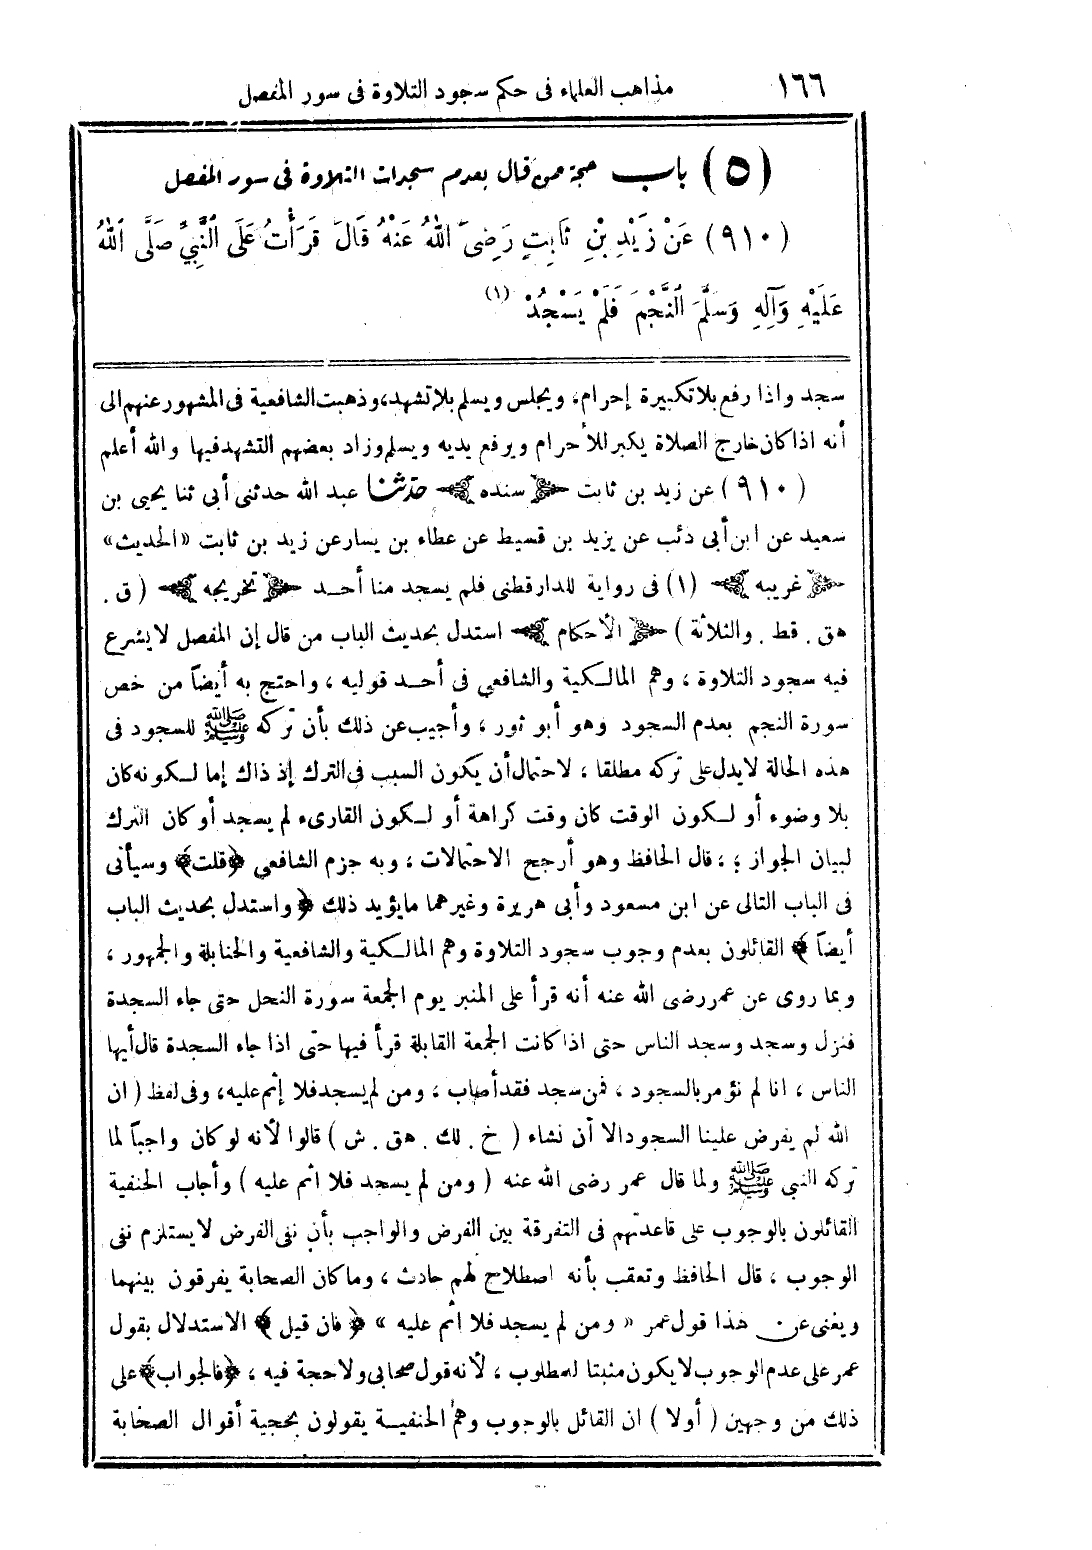 ١٦٦ مذاهب العلماء فى حكم سجود التلاوة فى سور المفصل
(٥) باب حجة من قال بعدم سجدات التلاوة فى سور المفصل
(٩١٠) عَنْ زَيْدِ بْنِ ثَابِتٍ رَضِىَ اللهُ عَنْهُ قَالَ قَرَأْتُ عَلَى النَّبِيِّ صَلَّى اللهُ
عَلَيْهِ وَآلِهِ وَسَلَّمَ النَّجْمَ فَلَمْ يَسْجُدْ (١)
سجد واذا رفع بلا تكبيرة إحرام، ويجلس ويسلم بلا تشهد، وذهبت الشافعية فى المشهور عنهم الى
أنه اذا كان خارج الصلاة يكبر للأحرام ويرفع يديه ويسلم وزاد بعضهم التشهد فيها والله أعلم
(٩١٠) عن زيد بن ثابت ﴿ سنده ﴾ حدثنا عبد الله حدثنى أبى ثنا يحيى بن
سعيد عن ابن أبى ذئب عن يزيد بن قسيط عن عطاء بن يسار عن زيد بن ثابت «الحديث»
﴿ غريبه ﴾ (١) فى رواية للدارقطنى فلم يسجد منا أحـد ﴿ تخريجه ﴾ (ق .
هق . قط . والثلاثة) ﴿ الأحكام ﴾ استدل بحديث الباب من قال إن المفصل لا يشرع
فيه سجود التلاوة ، وهم المالـكية والشافعي فى أحـد قوليه ، واحتج به أيضاً من خص
سورة النجم بعدم السجود وهو أبو ثور ، وأجيب عن ذلك بأن تركه ﷺ للسجود فى
هذه الحالة لا يدل على تركه مطلقا ، لاحتمال أن يكون السبب فى الترك إذ ذاك إما لـكونه كان
بلا وضوء أو لـكون الوقت كان وقت كراهة أو لـكون القارىء لم يسجد أو كان الترك
لبيان الجواز ؛ ، قال الحافظ وهو أرجح الاحتمالات ، وبه جزم الشافعي ﴿قلت﴾ وسيأتى
فى الباب التالى عن ابن مسعود وأبى هريرة وغيرهما ما يؤيد ذلك ﴿ واستدل بحديث الباب
أيضاً ﴾ القائلون بعدم وجوب سجود التلاوة وهم المالـكية والشافعية والحنابلة والجمهور ،
وبما روى عن عمر رضى الله عنه أنه قرأ على المنبر يوم الجمعة سورة النحل حتى جاء السجدة
فنزل وسجد وسجد الناس حتى اذا كانت الجمعة القابلة قرأ فيها حتى اذا جاء السجدة قال أيها
الناس ، انا لم نؤمر بالسجود ، فمن سجد فقد أصاب ، ومن لم يسجد فلا إثم عليه، وفى لفظ ( ان
الله لم يفرض علينا السجود الا أن نشاء ( خ . لك . هق . ش ) قالوا لأنه لو كان واجباً لما
تركه النبي ﷺ ولما قال عمر رضى الله عنه ( ومن لم يسجد فلا اثم عليه ) وأجاب الحنفية
القائلون بالوجوب على قاعدتهم فى التفرقة بين الفرض والواجب بأن نفى الفرض لا يستلزم نفى
الوجوب ، قال الحافظ وتعقب بأنه اصطلاح لهم حادث ، وما كان الصحابة يفرقون بينهما
ويغنى عن هذا قول عمر « ومن لم يسجد فلا اثم عليه » ﴿ فان قيل ﴾ الاستدلال بقول
عمر على عدم الوجوب لا يكون مثبتا للمطلوب ، لأنه قول صحابى ولا حجة فيه ، ﴿فالجواب﴾ على
ذلك من وجهين ( أولا ) ان القائل بالوجوب وهم الحنفيـة يقولون بحجية أقوال الصحابة